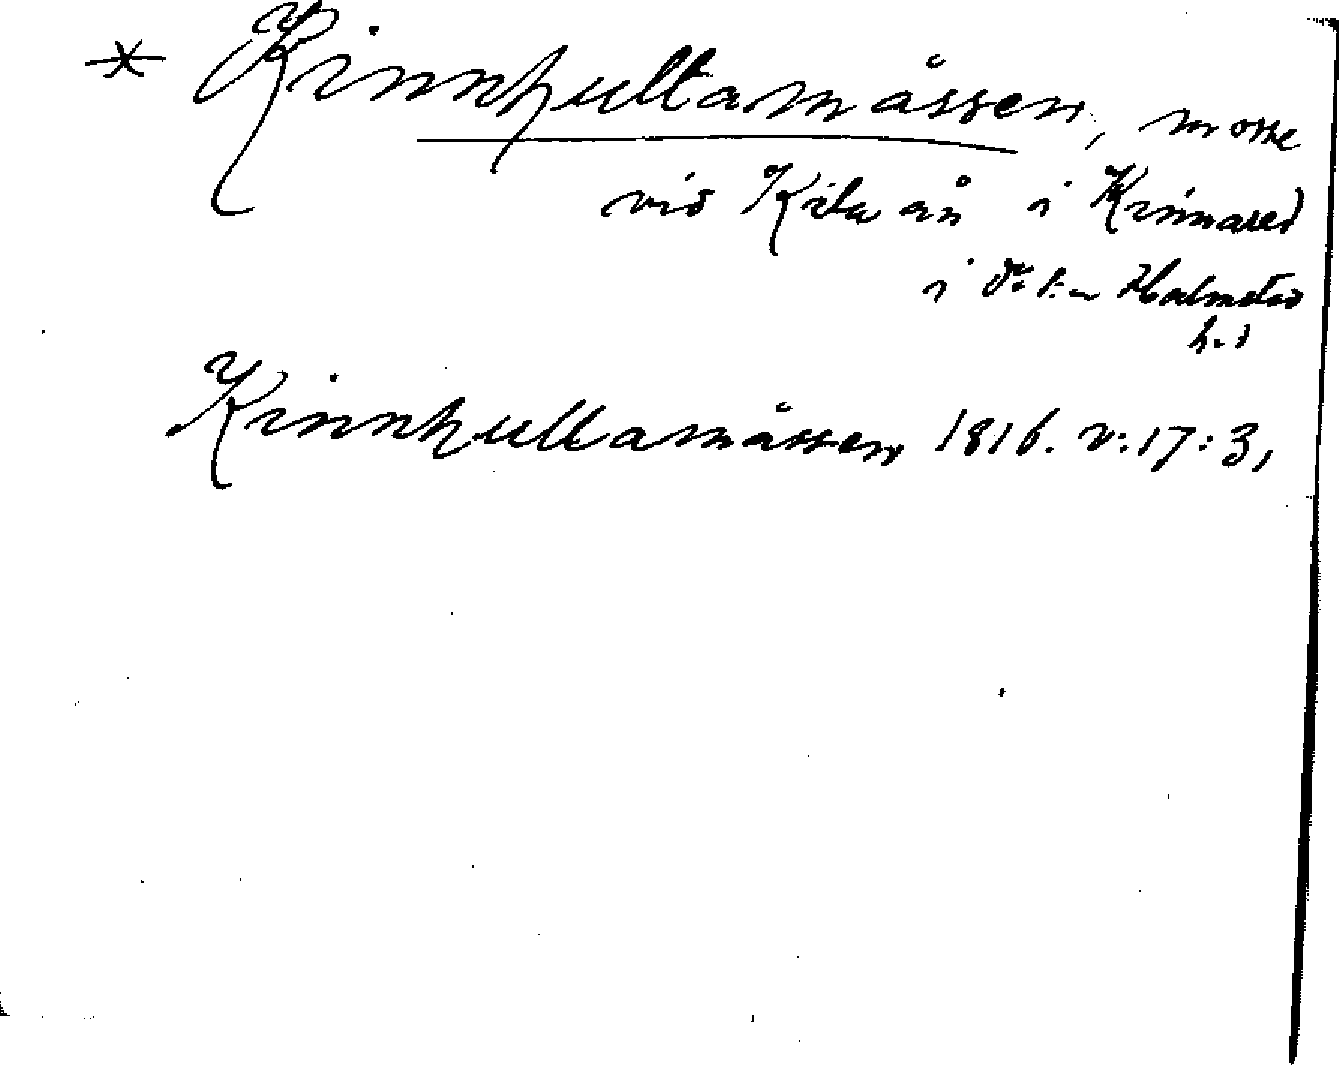 * Kinnhultamåssen, mosse
vid Kila ån i Kinnared
i d:o s:n Halmstad
h.d
Kinnhultamåssen 1816. v:17:3,